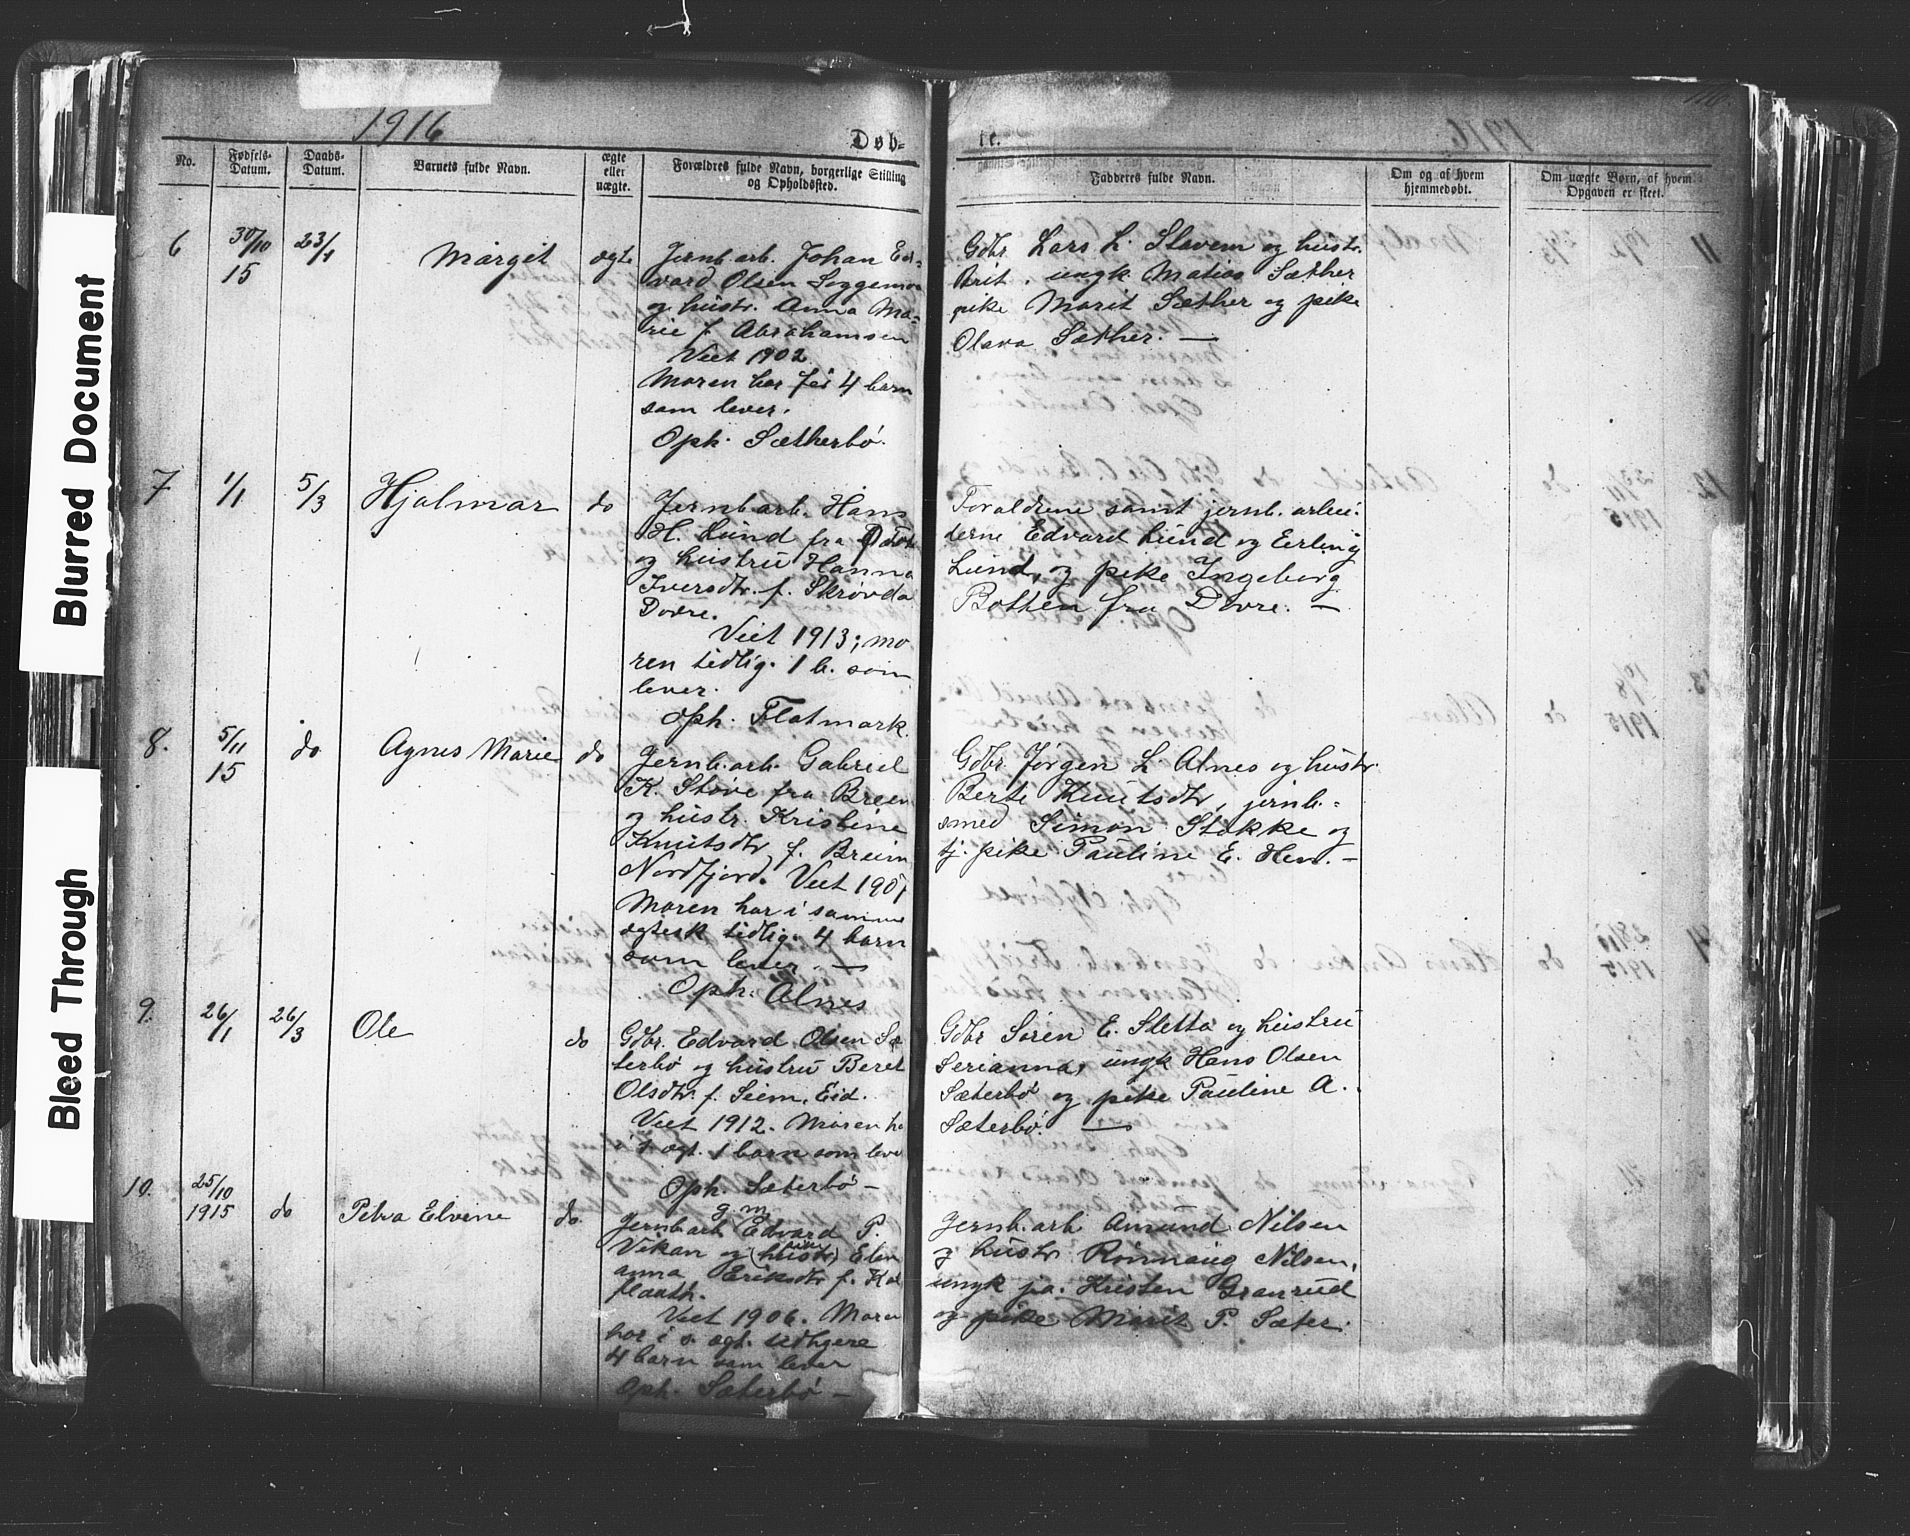 1916
Døb-
te.
No.
Fødsels-
Datum.
Daabs-
Datum.
Barnets fulde Navn.
ægte
eller
uægte.
Forældres fulde Navn, borgerlige Stilling
og Opholdsted.
Fadderes fulde Navn.
Om og af hvem
hjemmedøbt.
Om uægte Børn, af hvem
Opgaven er skeet.
6
30/10
15
23/1
Margit
ægte
Jernb.arb. Johan Ed-
vard Olsen
og hustr. Anna Ma-
rie f. Abrahamsen
Viet 1902
Moren har før 4 barn
som lever.
Oph. Sætherbø.
Gdbr. Lars L. Slavem og hustr.
Brit, ungk Matias Sæther
pike Marit Sæther og pike
Olava Sæther. —
7
1/1
5/3
Hjalmar
do
Jernb.arb. Hans
H. Lund fra
og hustru Hanna
Iversdtr. f. Skrøvda
Dovre.
Viet 1913; mo
ren tidlig. 1 b. som
lever.
Oph. Flatmark.
Foraldrene samt jernb. arbei-
derne Edvard Lund og Erling
Lund, og pike Ingeborg
Botten fra Dovre. —
8.
5/11
15
do
Agnes Marie
do
Jernb.arb. Gabriel
K. Støve fra Breim
og hustr. Kristine
Knutsdtr f. Breim
Nordfjord. Viet 1907
Moren har i samme
ægtesk tidlig. 4 barn
som lever. —
Oph. Alnes
Gdbr. Jørgen L. Alnes og hustr.
Berte Knutsdtr, jernb.-
smed Simon Stokke og
tj. pike Pauline E. Hen. —
9.
26/1
26/3
Ole
do
Gdbr. Edvard Olsen Sæ
terbø og hustru Beret
Olsdtr. f. Seim, Eid.
Viet 1912. Moren ha
s. ægt. 1 barn som leve
Oph. Sæterbø —
Gdbr Søren E. Sletta og hustru
Serianna, ungk Hans Olsen
Sæterbø og pike Pauline A.
Sæterbø. —
10.
25/10
1915
do
Petra Elvine
do
g.m.
Jernb.arb Edvard P.
Vikan og (hustr) Elen
anna Eriksdtr f. Kal
flaath.
Viet 1906. Moren
har i s. ægt. tidligere
4 barn som lever
Oph. Sæterbø —
Jernb.arb Amund Nilsen
og hustr Rønnaug Nilsen,
ungk Kristen Granrud
og pike Marit P. Sæter.
Blurred Document
Bleed Through